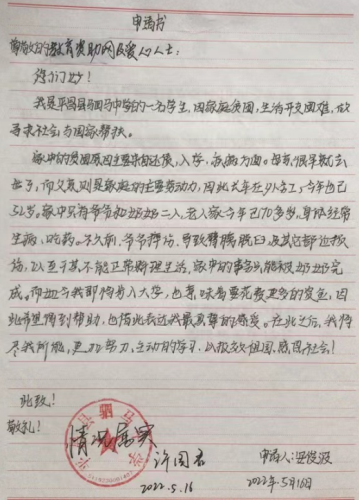 申请书
尊敬的教育资助网及爱心人士:
你们好!
我是平昌县驷马中学的一名学生,因家庭贫困,生活开支困难,故
寻求社会与国家帮扶。
家中的贫困原因主要来自还债,入学,疾病方面。母亲很早就去
世了,而父亲则是家庭的主要劳动力,因此长年在外务工,今年也已
52岁。家中只有爷爷和奶奶二人,老人家今年已70多岁,身体经常
生病、吃药。不久前,爷爷摔伤,导致胳膊脱臼及其它部位损
伤,以至于其不能正常料理生活,家中的事务只能靠奶奶完
成。而如今我即将步入大学,也意味着要花费更多的资金,因
此希望得到帮助,也借此表达我最真挚的感受。在此之后,我将
尽我所能,更加努力、主动的学习,以报效祖国,感恩社会!
此致!
敬礼!
情况属实
许国君
2022.5.16
申请人:俊波
2022年5月16日
县驷马中学